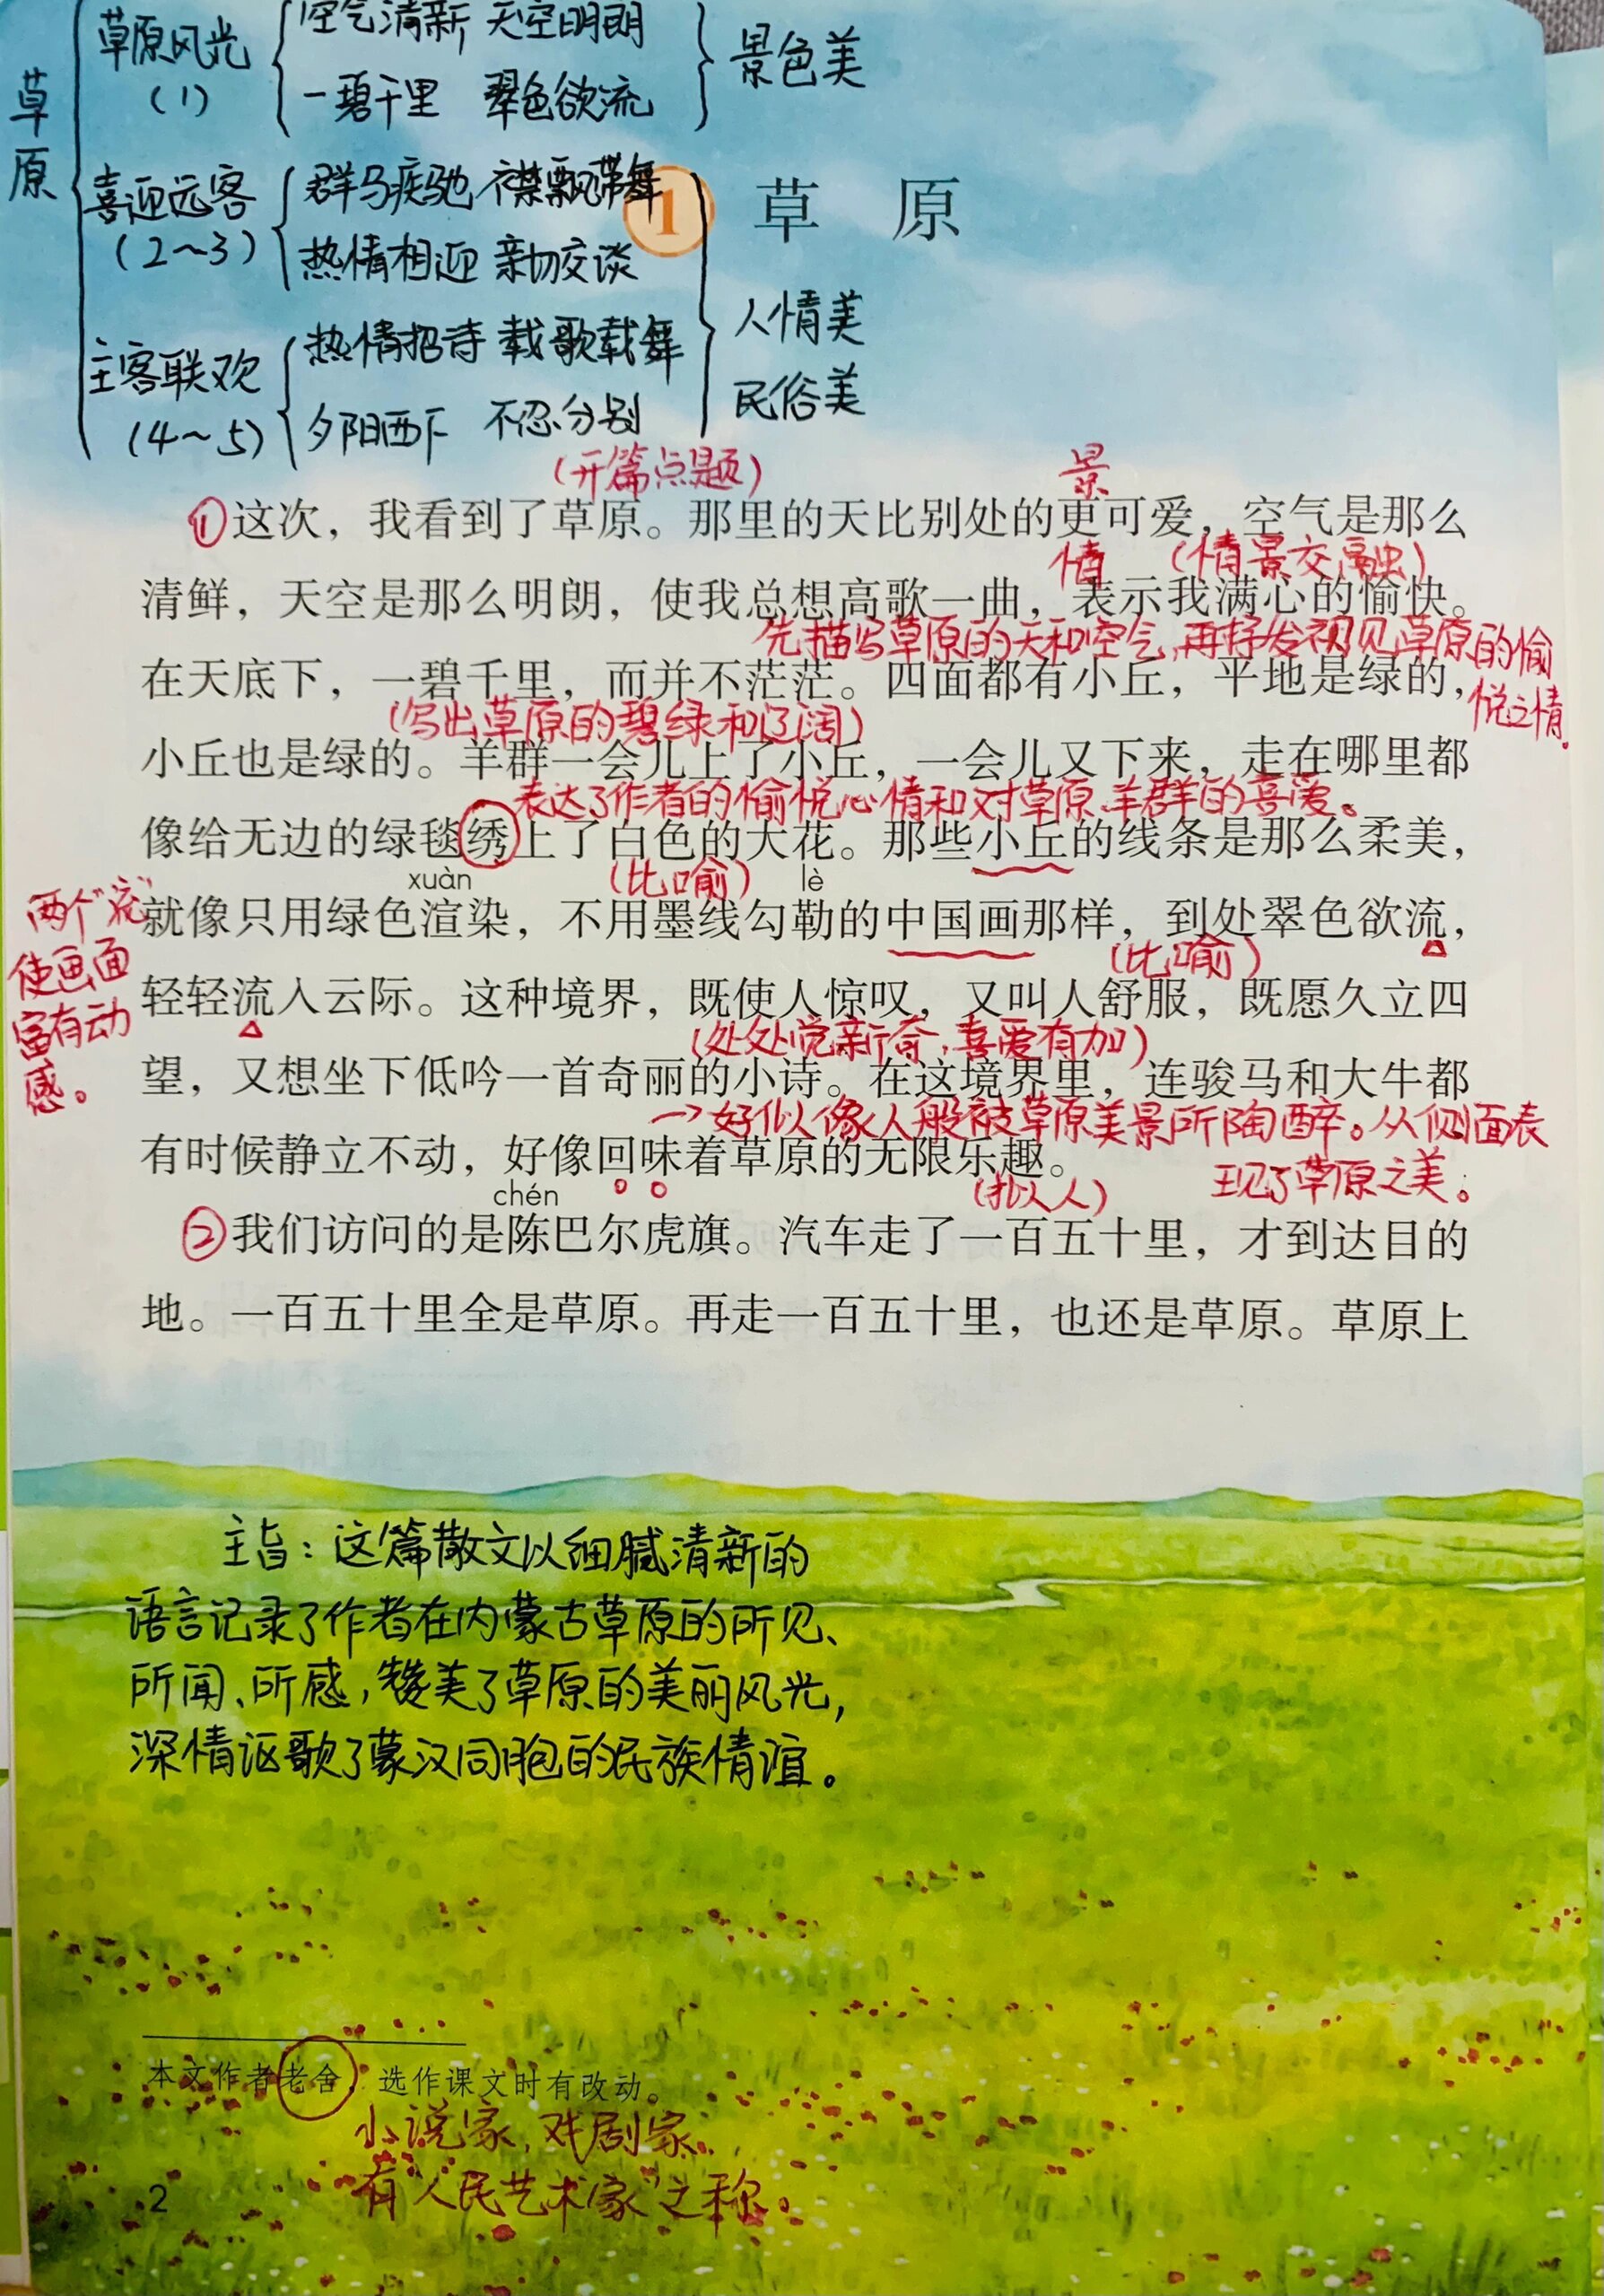 草原
草原风光
(1)
空气清新 天空明朗
一碧千里 翠色欲流
景色美
喜迎远客
(2~3)
群马疾驰 衣襟飘带舞
热情相迎 亲切交谈
主客联欢
(4~5)
热情招待 载歌载舞
夕阳西下 不忍分别
人情美
民俗美
1 草原
(开篇点题)
景
①这次，我看到了草原。那里的天比别处的更可爱，空气是那么
情 (情景交融)
清鲜，天空是那么明朗，使我总想高歌一曲，表示我满心的愉快。
先描写草原的天和空气,再抒发初见草原的愉
悦之情。
在天底下，一碧千里，而并不茫茫。四面都有小丘，平地是绿的，
(写出草原的碧绿和辽阔)
小丘也是绿的。羊群一会儿上了小丘，一会儿又下来，走在哪里都
表达了作者的愉悦心情和对草原、羊群的喜爱。
像给无边的绿毯绣上了白色的大花。那些小丘的线条是那么柔美，
xuàn (比喻) lè
就像只用绿色渲染，不用墨线勾勒的中国画那样，到处翠色欲流，
(比喻)
两个"流"
使画面
富有动
感。
轻轻流入云际。这种境界，既使人惊叹，又叫人舒服，既愿久立四
(处处觉新奇,喜爱有加)
望，又想坐下低吟一首奇丽的小诗。在这境界里，连骏马和大牛都
→好似像人般被草原美景所陶醉。从侧面表
现了草原之美。
有时候静立不动，好像回味着草原的无限乐趣。
chén (拟人)
②我们访问的是陈巴尔虎旗。汽车走了一百五十里，才到达目的
地。一百五十里全是草原。再走一百五十里，也还是草原。草原上
主旨：这篇散文以细腻清新的
语言记录了作者在内蒙古草原的所见、
所闻、所感,赞美了草原的美丽风光,
深情讴歌了蒙汉同胞的民族情谊。
本文作者老舍，选作课文时有改动。
小说家,戏剧家,
有"人民艺术家"之称。
2